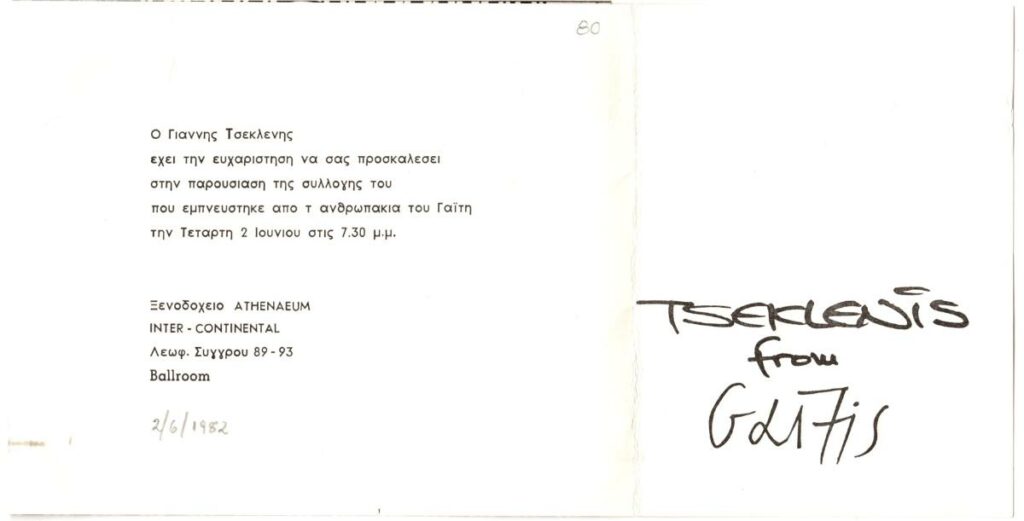 80
Ο Γιαννης Τσεκλενης
εχει την ευχαριστηση να σας προσκαλεσει
στην παρουσιαση της συλλογης του
που εμπνευστηκε απο τ ανθρωπακια του Γαΐτη
την Τεταρτη 2 Ιουνιου στις 7.30 μ.μ.
Ξενοδοχειο ATHENAEUM
INTER - CONTINENTAL
Λεωφ. Συγγρου 89 - 93
Ballroom
2/6/1982
TSEKLENIS
from
GαΪTis